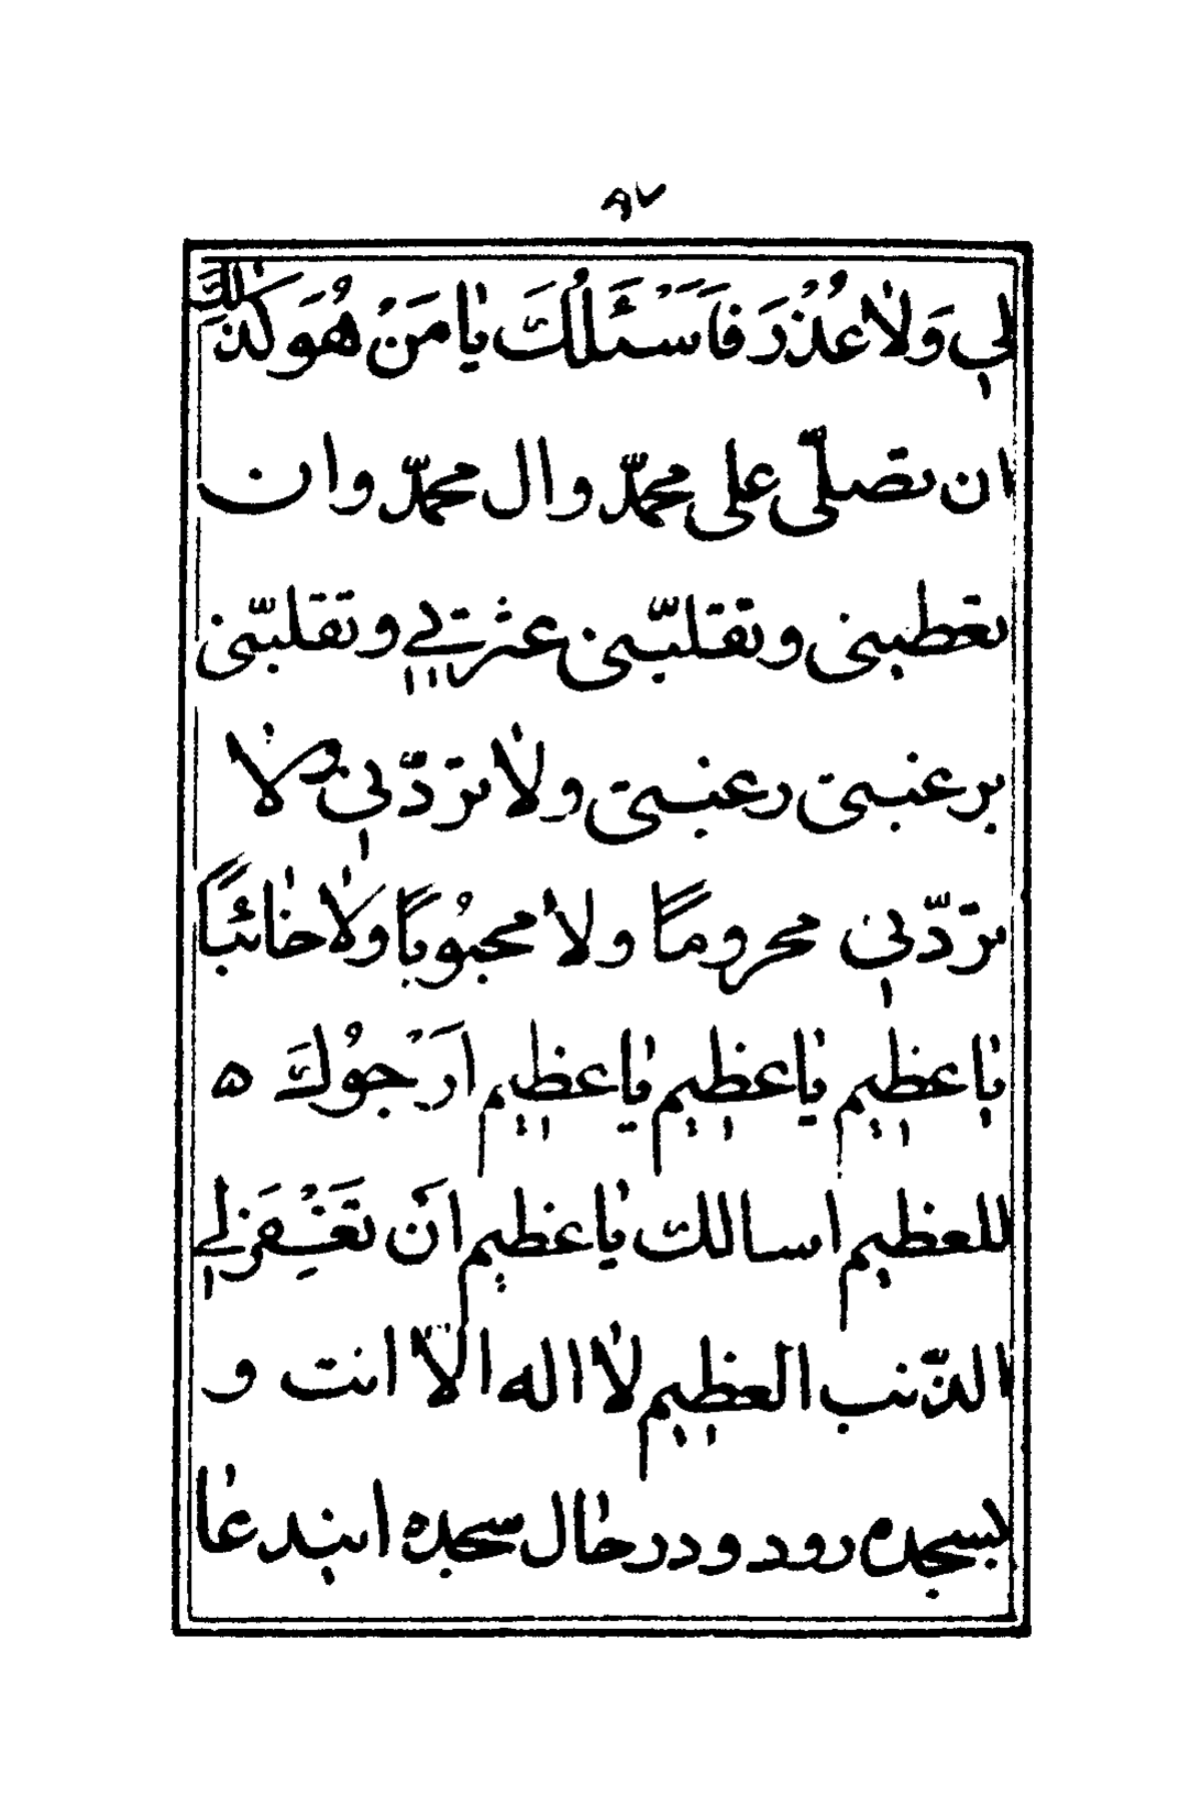 ٨٧
لي وَلاٰ عُذْرَ فَاَسْئَلُكَ يٰا مَنْ هُوَ كَذٰلِكَ
ان تصلّى على محمّد وال محمّد وان
تعطينى وتقلبّنى عثرتي وتقلبّنى
برغبتى رغبتى ولاٰ تردّني ولاٰ
تردّني محروماً ولاٰ محبُوباً ولاٰ خٰائبًا
يٰا عظيم يٰا عظيم يٰا عظيم ارَْجوُكَ ۵
للعظيم اسالك يٰا عظيم انَ تَغْفِرَ لي
الذّنب العظيم لاٰ اله الاّ انت و
بسجده رود و در حٰال سجده ايند عٰا